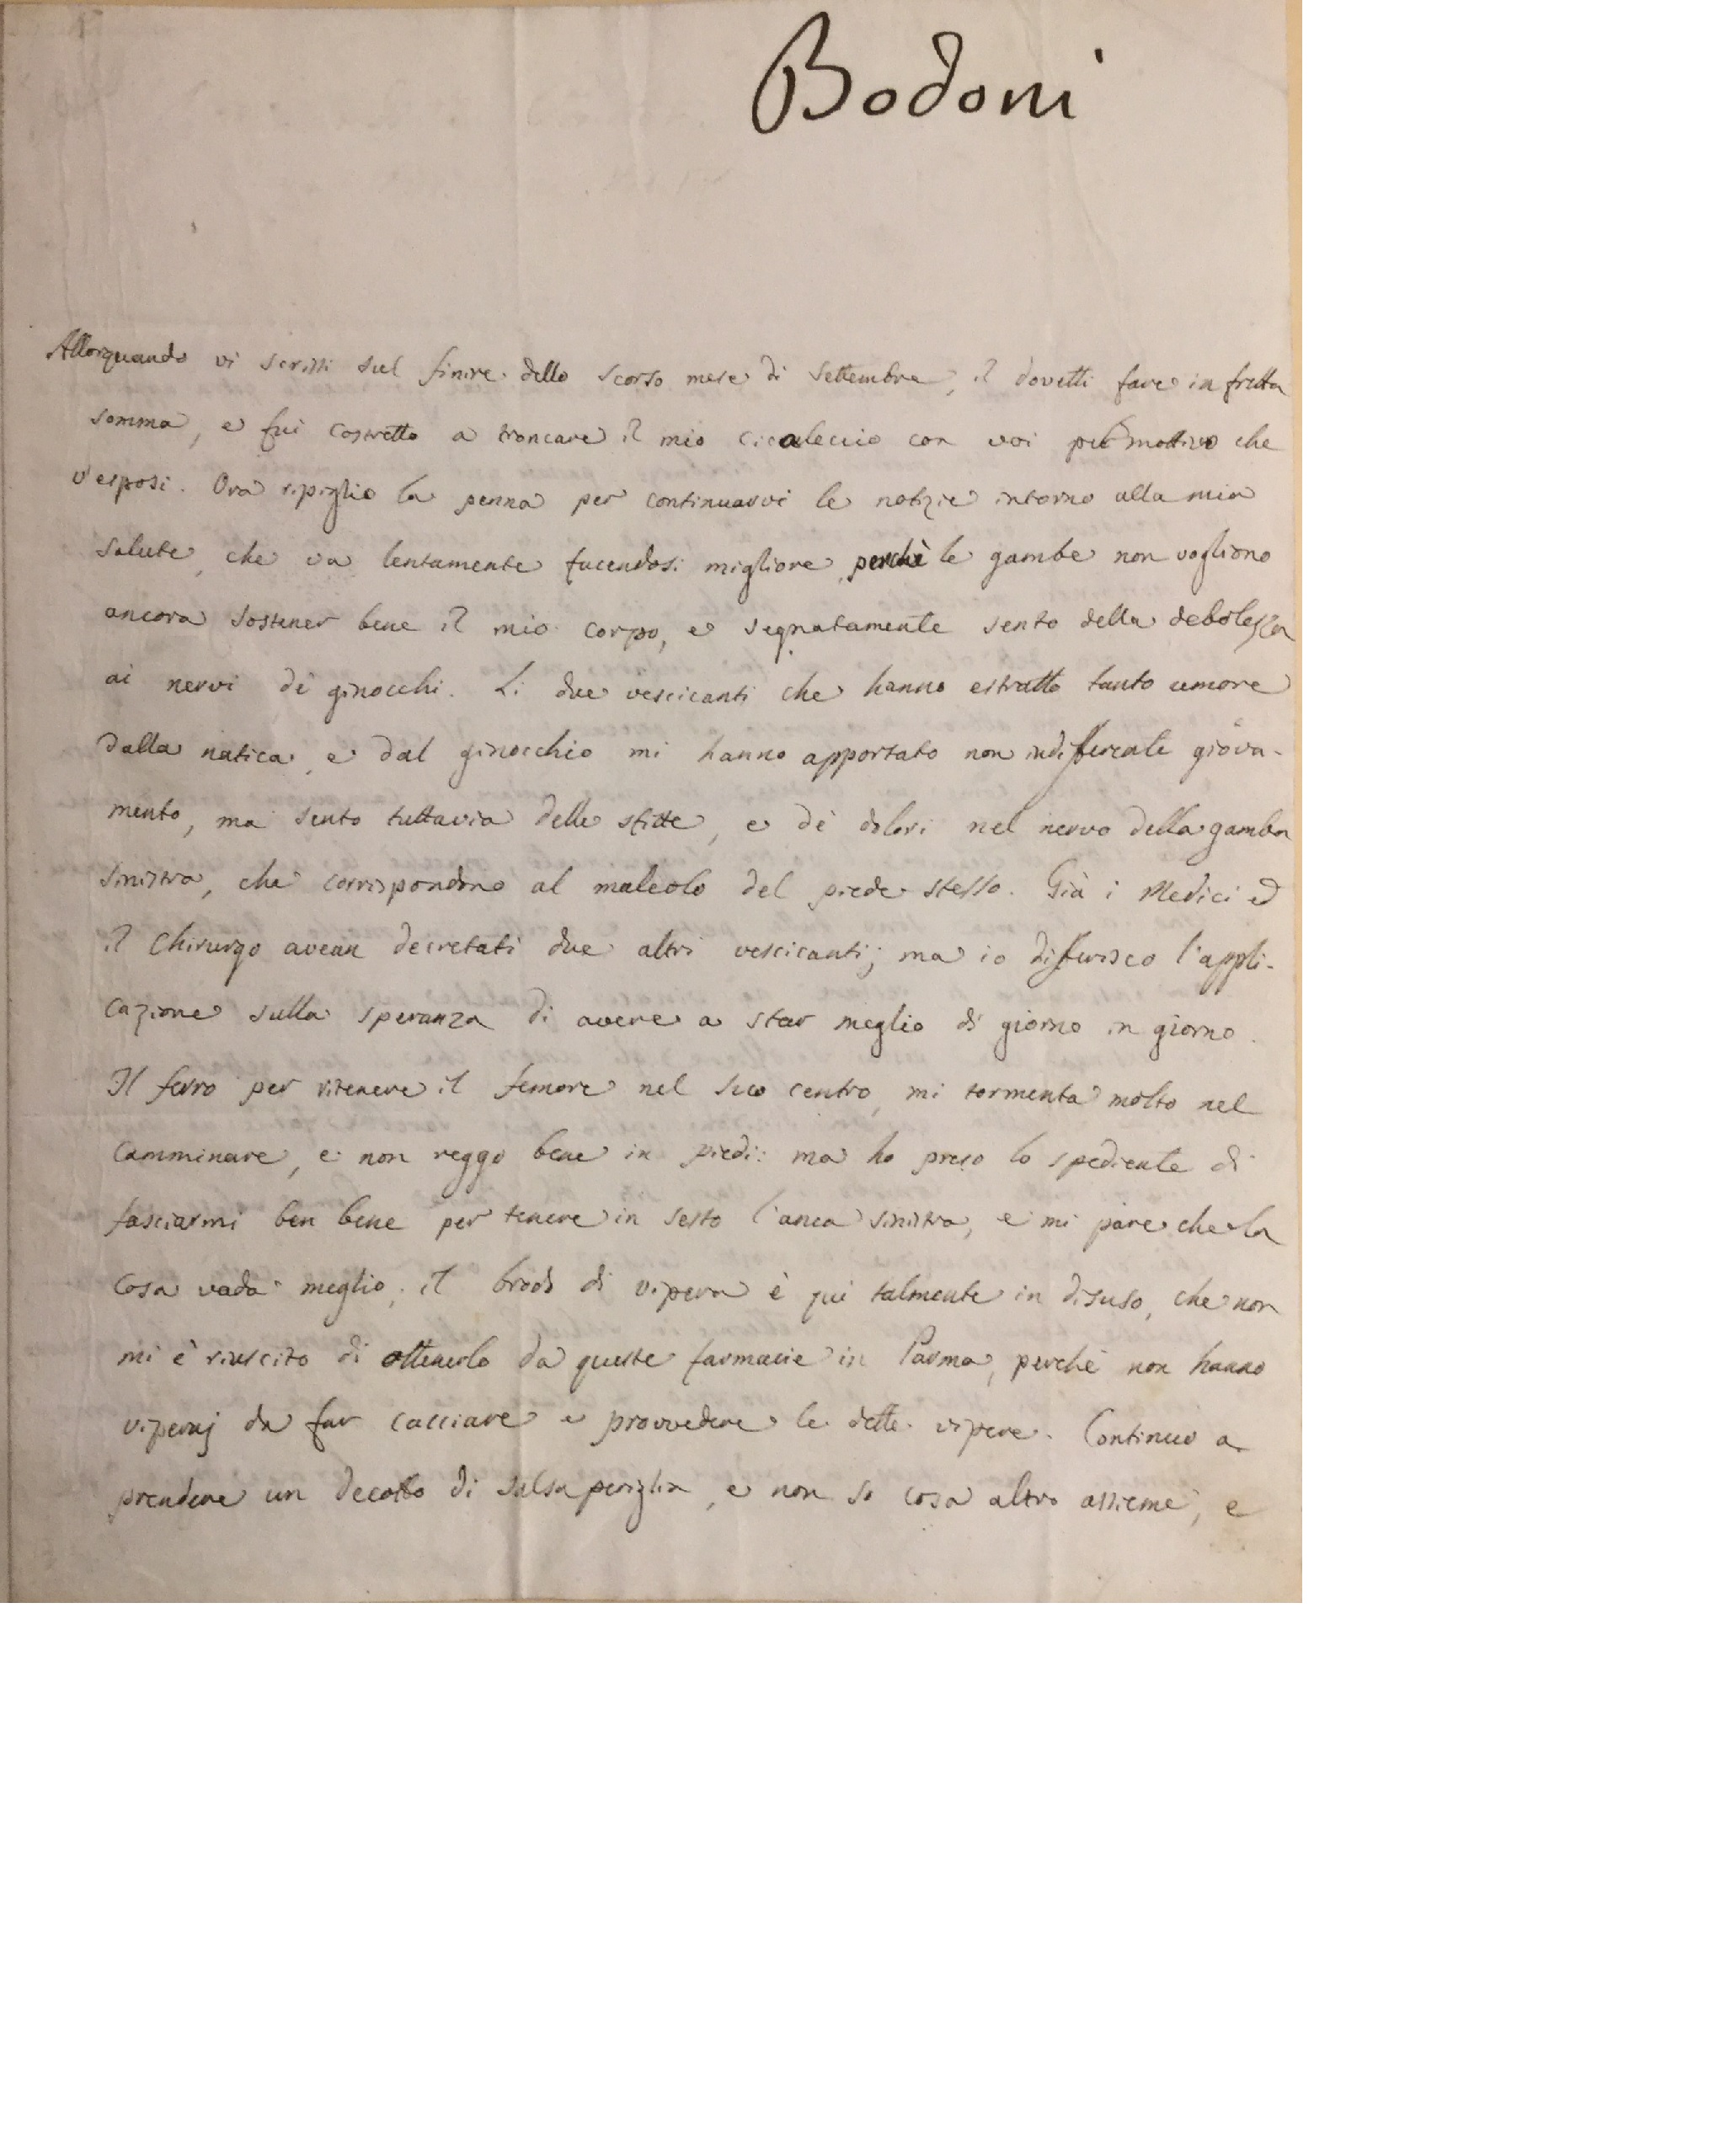 Bodoni
Allorquando vi scrissi sul finire dello scorso mese di Settembre, il dovetti fare in fretta
somma, e fui costretto a troncare il mio cicaleccio con voi pel mottivo che
v'esposi. Ora ripiglio la penna per continuarvi le notizie intorno alla mia
salute, che va lentamente facendosi migliore, perchè le gambe non vogliono
ancora sostener bene il mio corpo, e segnatamente sento della debolezza
ai nervi de' ginocchi. Li due vescicanti che hanno estratto tanto umore
dalla natica, e dal ginocchio mi hanno apportato non indifferente giova-
mento, ma sento tuttavia delle stitte, e de' dolori nel nervo della gamba
sinistra, che corrispondono al maleolo del piede stesso. Già i Medici ed
il Chirurgo avean decretati due altri vescicanti; ma io differisco l'appli-
cazione sulla speranza di avere a star meglio di giorno in giorno.
Il ferro per ritenere il femore nel suo centro, mi tormenta molto nel
camminare, e non reggo bene in piedi: ma ho preso lo spediente di
fasciarmi ben bene per tenere in sesto l'anca sinistra, e mi pare che la
cosa vada meglio; il brodo di vipera è qui talmente in disuso, che non
mi è riuscito di ottenerlo da queste farmacie in Parma, perchè non hanno
viperaj da far cacciare e provvedere le dette vipere. Continuo a
prendere un decotto di salsapariglia, e non so cosa altro assieme, e